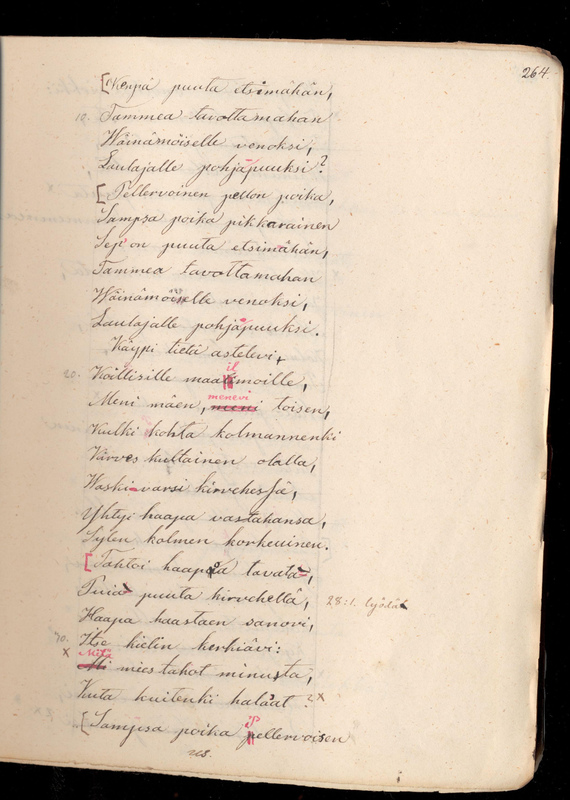 264.
[Kenpä puuta etsimähän,
10. Tammea tavottamahan
Wäinämöiselle venoksi,
Laulajalle pohjapuuksi?
[Pellervoinen pellon poika,
Sampsa poika pikkarainen
Sep' on puuta etsimähän,
Tammea tavottamahan
Wäinämöiselle venoksi,
Laulajalle pohjapuuksi.
Käypi tietä astelevi,
il
20. Koillisille maatimoille,
menevi
Meni mäen, meni toisen,
Kulki kohta kolmannenki
Kirves kultainen olalla,
Waski-varsi kirvehessä,
Yhtyi haapa vastahansa,
Sylen kolmen korkeuinen.
[Tahtoi haapoa tavata,
Puia puuta kirvehellä, 28:1. lyödä
Haapa haastaen sanovi,
30. Itse kielin kerkiävi:
x Mitä
Mi mies tahot minusta,
Kuta kuitenki halaat? x
P
[Sampsa poika pellervoisen